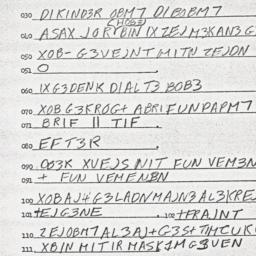 030 DIKIND3R OBM7 DIBOBM7
(HOSE)
040 ASAX JORYBIN IX ZEJM3KAN3G
050 XOB- G3VEJNT MITN ZEJDN
051 O
060 IXG3DENK DIALT3 BOB3
070 XOB G3KROG+ ABRIFUNPAPM7
071 BRIF || TIF
080 EFT3R
090 OB3K XVEJS NIT FUN VEM3N
091 + FUN VEMENBN
100 XOBAJ4G3LADNMAJN3AL3KREJ
101 +EJG3NE 102 +FRAJNT
110 ZEJOBM7AL3AJ+G3S+TIMCUK
111 XBIN MITIR MASK1MG3VEN